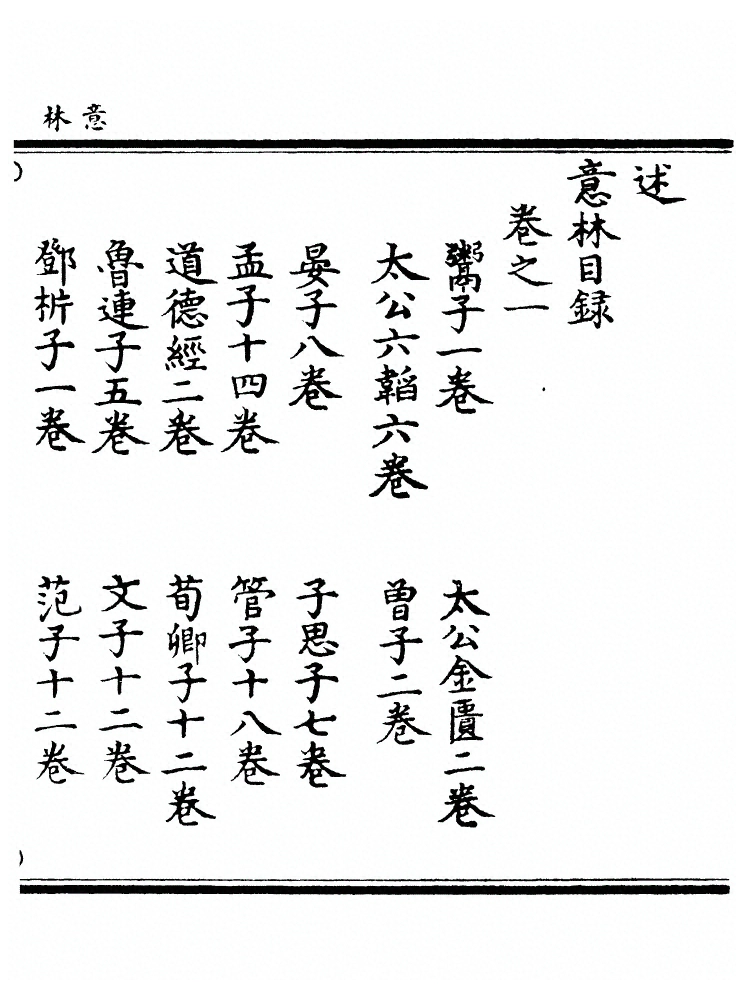 意林
述
意林目録
卷之一
鬻子一卷 太公金匱二卷
太公六韜六卷 曾子二卷
晏子八卷 子思子七卷
孟子十四卷 管子十八卷
道德經二卷 荀卿子十二卷
魯連子五卷 文子十二卷
鄧析子一卷 范子十二卷